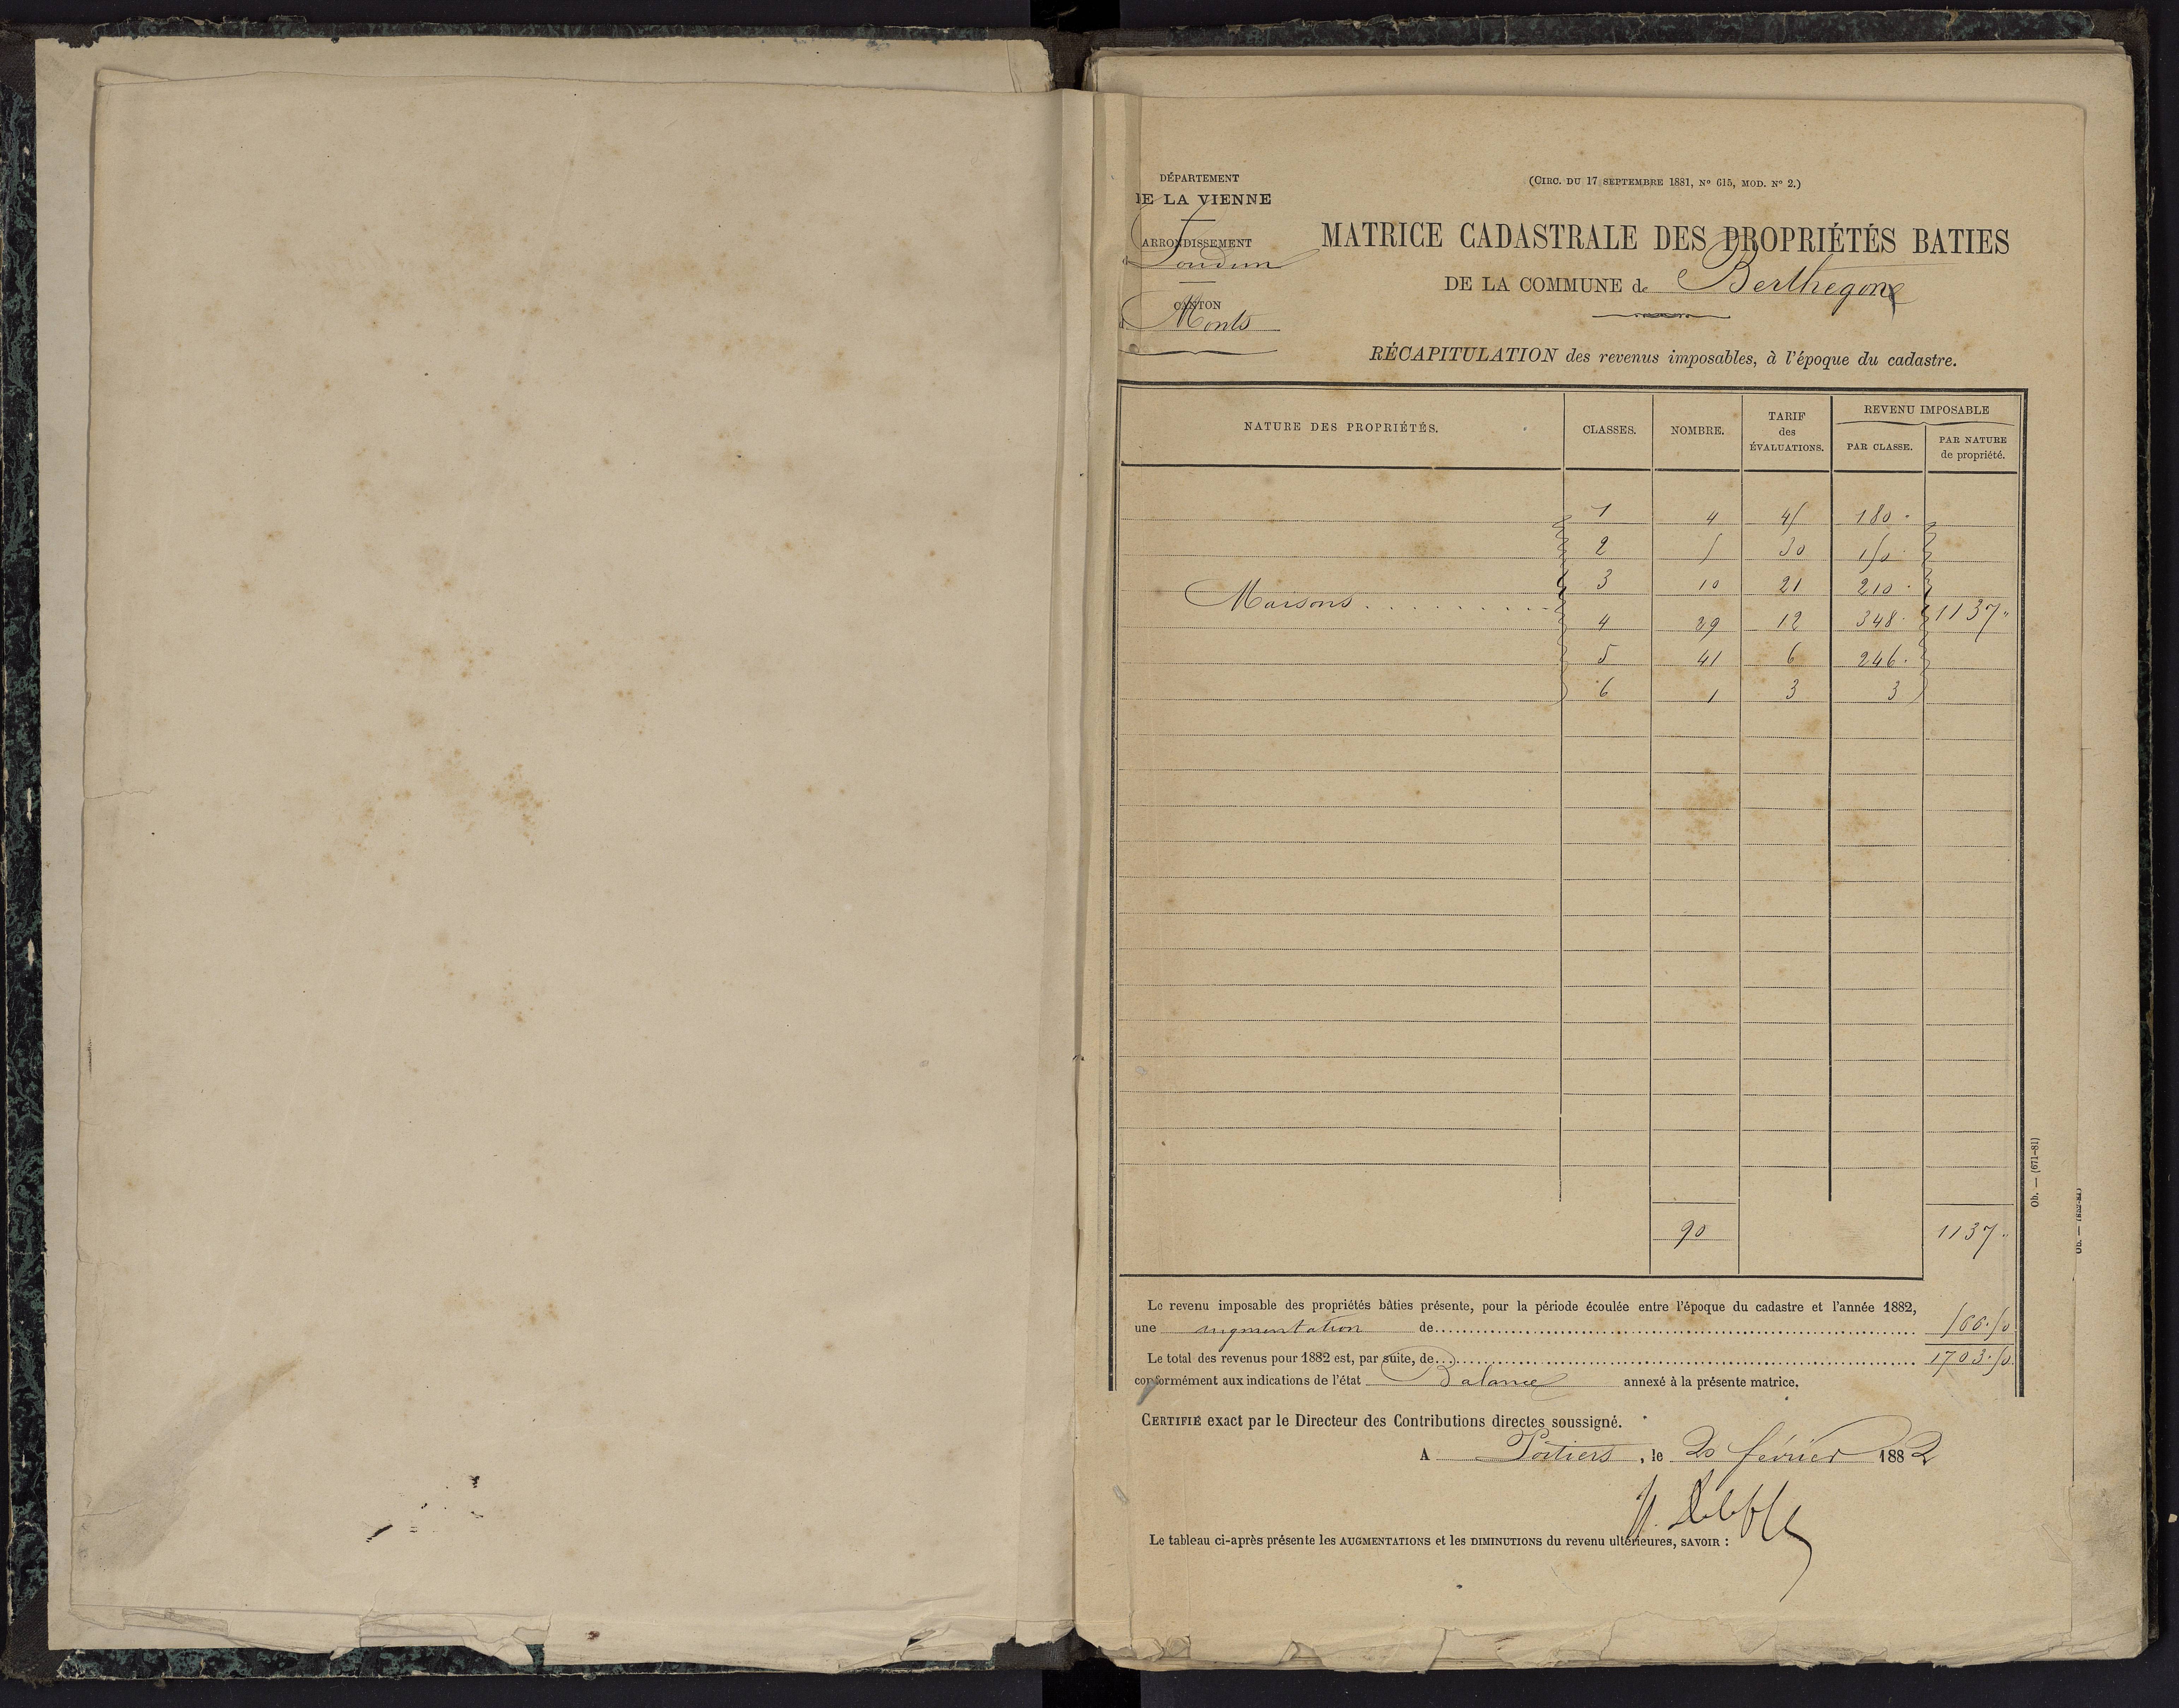 DÉPARTEMENT
DE LA VIENNE
ARRONDISSEMENT
d Loudun
CANTON
d Monts
(CIRC. DU 17 SEPTEMBRE 1881, Nº 615, MOD. Nº 2.)
MATRICE CADASTRALE DES PROPRIÉTÉS BATIES
DE LA COMMUNE de Berthegon
RÉCAPITULATION des revenus imposables, à l'époque du cadastre.
NATURE DES PROPRIÉTÉS. CLASSES. NOMBRE. TARIF des ÉVALUATIONS. REVENU IMPOSABLE
PAR CLASSE. PAR NATURE de propriété.
1 4 45 180
2 5 30 150
3 10 21 210
Maisons . . . . . . . . . 1137
4 29 12 348
5 41 6 246
6 1 3 3
90 1137
Le revenu imposable des propriétés bâties présente, pour la période écoulée entre l'époque du cadastre et l'année 1882,
une augmentation de 566.50
Le total des revenus pour 1882 est, par suite, de 1703.50
conformément aux indications de l'état Balance annexé à la présente matrice.
CERTIFIÉ exact par le Directeur des Contributions directes soussigné.
A Poitiers, le 20 février 1882
Le tableau ci-après présente les AUGMENTATIONS et les DIMINUTIONS du revenu ultérieures, SAVOIR :
Ob. — (671-81)